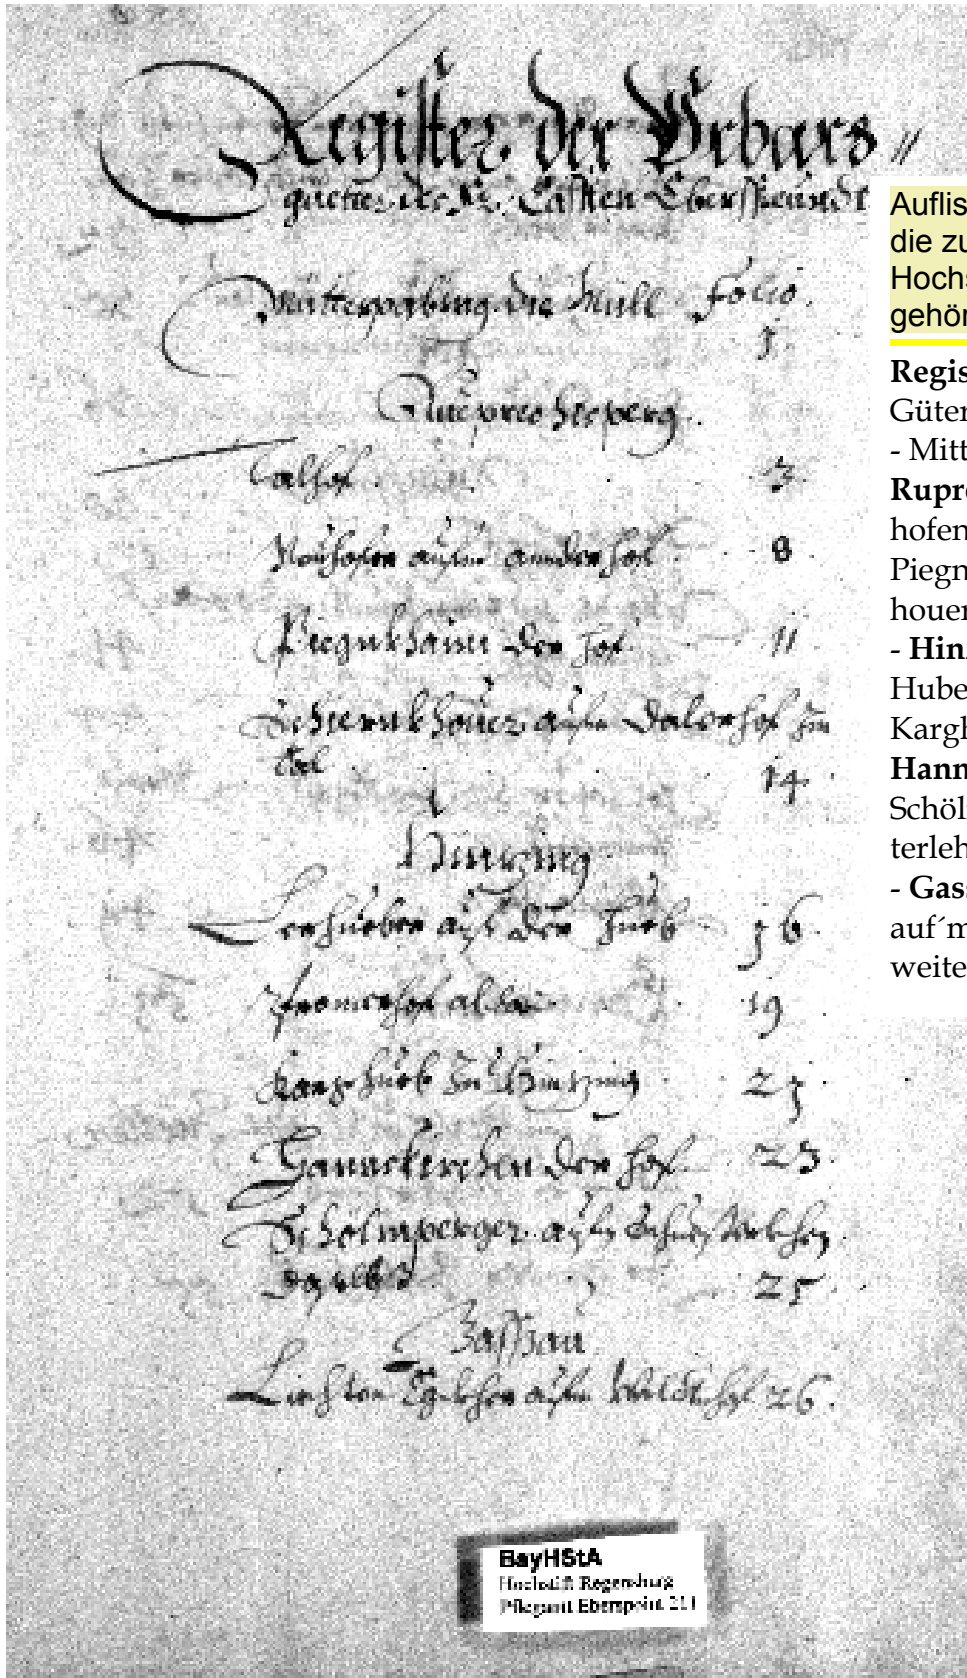 Register der Vrbars //
güetter des Casten Eberspeundt
Mitterpäbing die Müll Folio.
1
Rueprechtsperg.
Calhof 3
Neuhofer aufm andern hof 8
Piegnkhaim der hof 11
Schwenkhouer aufm Dalerhof zu
tal 14
Hinzing
Lerhueber auf der hueb 16
19
Karghueb zu Hinzing 21
Hannekirchen der hof 23
Schölnperger aufm
25
Gassau
aufm 26
BayHStA
Hochstift Regensburg
Pflegamt Eberspoint 211
Auflis
die zu
Hochs
gehör
Regis
Güter
- Mitt
Rupre
hofen
Piegn
houer
- Hinz
Hube
Kargh
Hann
Schöl
terleh
- Gass
auf´m
weite